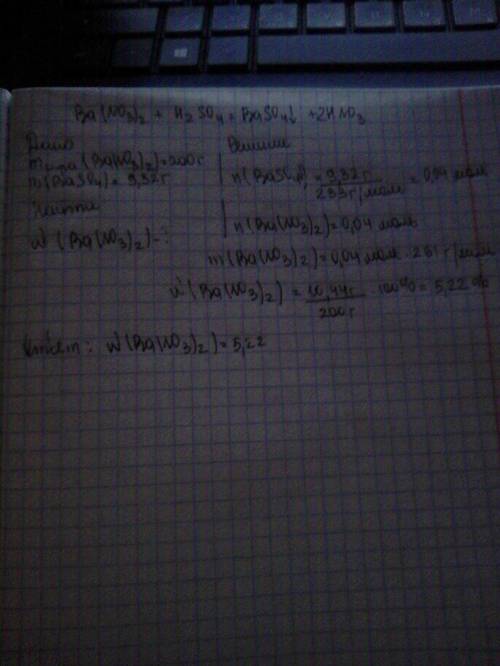 Ba(NO3)2 + H2SO4 = BaSO4↓ + 2HNO3
Дано
m (Ba(NO3)2) = 200 г
m(BaSO4) = 9,32 г
w (Ba(NO3)2) - ?
Решение
n(BaSO4) = 9,32 г / 233 г/моль = 0,04 моль
n(Ba(NO3)2) = 0,04 моль
m(Ba(NO3)2) = 0,04 моль · 261 г/моль
w (Ba(NO3)2) = 10,44 г / 200 г · 100% = 5,22 %
w (Ba(NO3)2) = 5,22